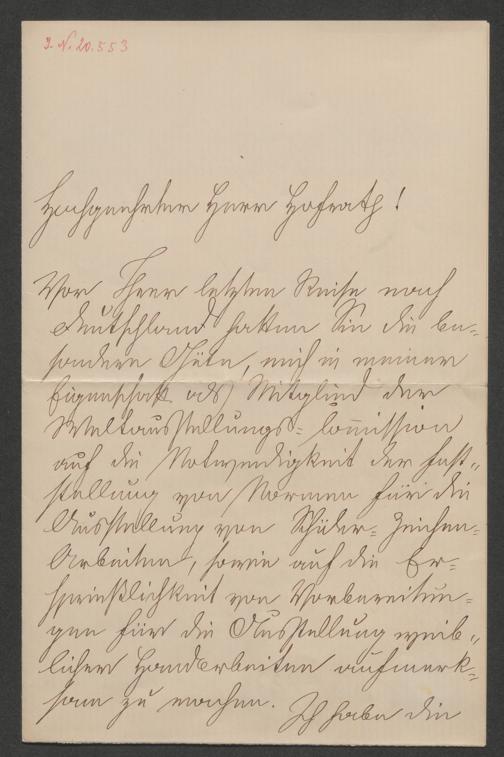 J. N. 20.553
Hochgeehrter Herr Hofrath!
Vor Ihrer letzten Reise nach
Deutschland hatten Sie die be=
sondere Güte, mich in meiner
Eigenschaft als Mitglied der
Weltausstellungs=Com̅ission
auf die Notwendigkeit der Fest=
stellung von Normen für die
Ausstellung von Schüler=Zeichen=
Arbeiten, sowie auf die Er=
sprießlichkeit von Vorbereitun=
gen für die Ausstellung weib=
licher Handarbeiten aufmerk=
sam zu machen. Ich habe die